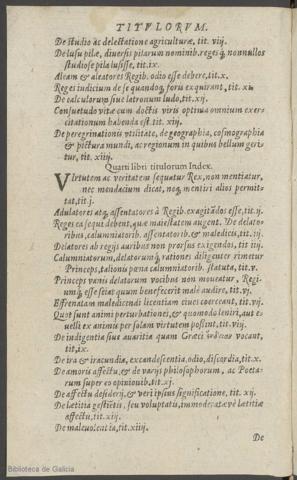 TITVLORVM.
De studio ac delectatione agriculturæ, tit. viij.
De lusu pilæ, diuersis pilarum nominib. reges q̃ nonnullos
studiose pila lusisse, tit. ix.
Aleam & aleatores Regib. odio esse debere, tit. x.
Reges iudicium de se quandoq; foris exquirant, tit. xi
De calculorum siue latronum ludo, tit. xij.
Consuetudo vitæ cum doctis viris optima omnium exer-
citationum habenda est. tit. xiij.
De peregrinationis vtilitate, de geographia, cosmographia
& pictura mundi, ac regionum in quibus bellum geri-
tur, tit. xiiij.
Quarti libri titulorum Index.
VIrtutem ac veritatem sequatur Rex, non mentiatur,
nec mendacium dicat, neq; mentiri alios permit-
tat, tit. j.
Adulatores atq; assentatores à Regib. exagitãdos esse, tit. ij.
Reges ea sequi debent, quæ maiestatem augent. Vbi delato-
ribus, calumniatorib. assentatorib. & maledicis, tit. iij.
Delatores ab regijs auribus non prorsus exigendos, tit iiij.
Calumniatorum, delatorumq; rationes diligenter rimetur
Princeps, talionis pœna calumniatorib. statuta, tit. v.
Princeps vanis delatorum vocibus non moueatur, Regi-
umq; esse sciat quum benefecerit male audire, tit. vj.
Effrenatam maledicendi licentiam ciues coerceant, tit. vij.
Quot sunt animi perturbationes, & quomodo leniri, aut e-
uelli ex animis per solam virtutem possint, tit. viij.
De indigentia siue auaritia quam Græci vocant,
tit, ix.
De ira & iracundia, excandescentia, odio, discordia, tit. x.
De amoris affectu, & de varijs philosophorum, ac Poeta-
rum super eo opinionib. tit. xj.
De affectu desiderij, & veri ipsius significatione, tit. xij.
De lætitia gestiẽtis, seu voluptatis, immoderatæve lætitiæ
affectu, tit. xiij.
De maleuolentia, tit. xiiij.
De
Biblioteca de Galicia